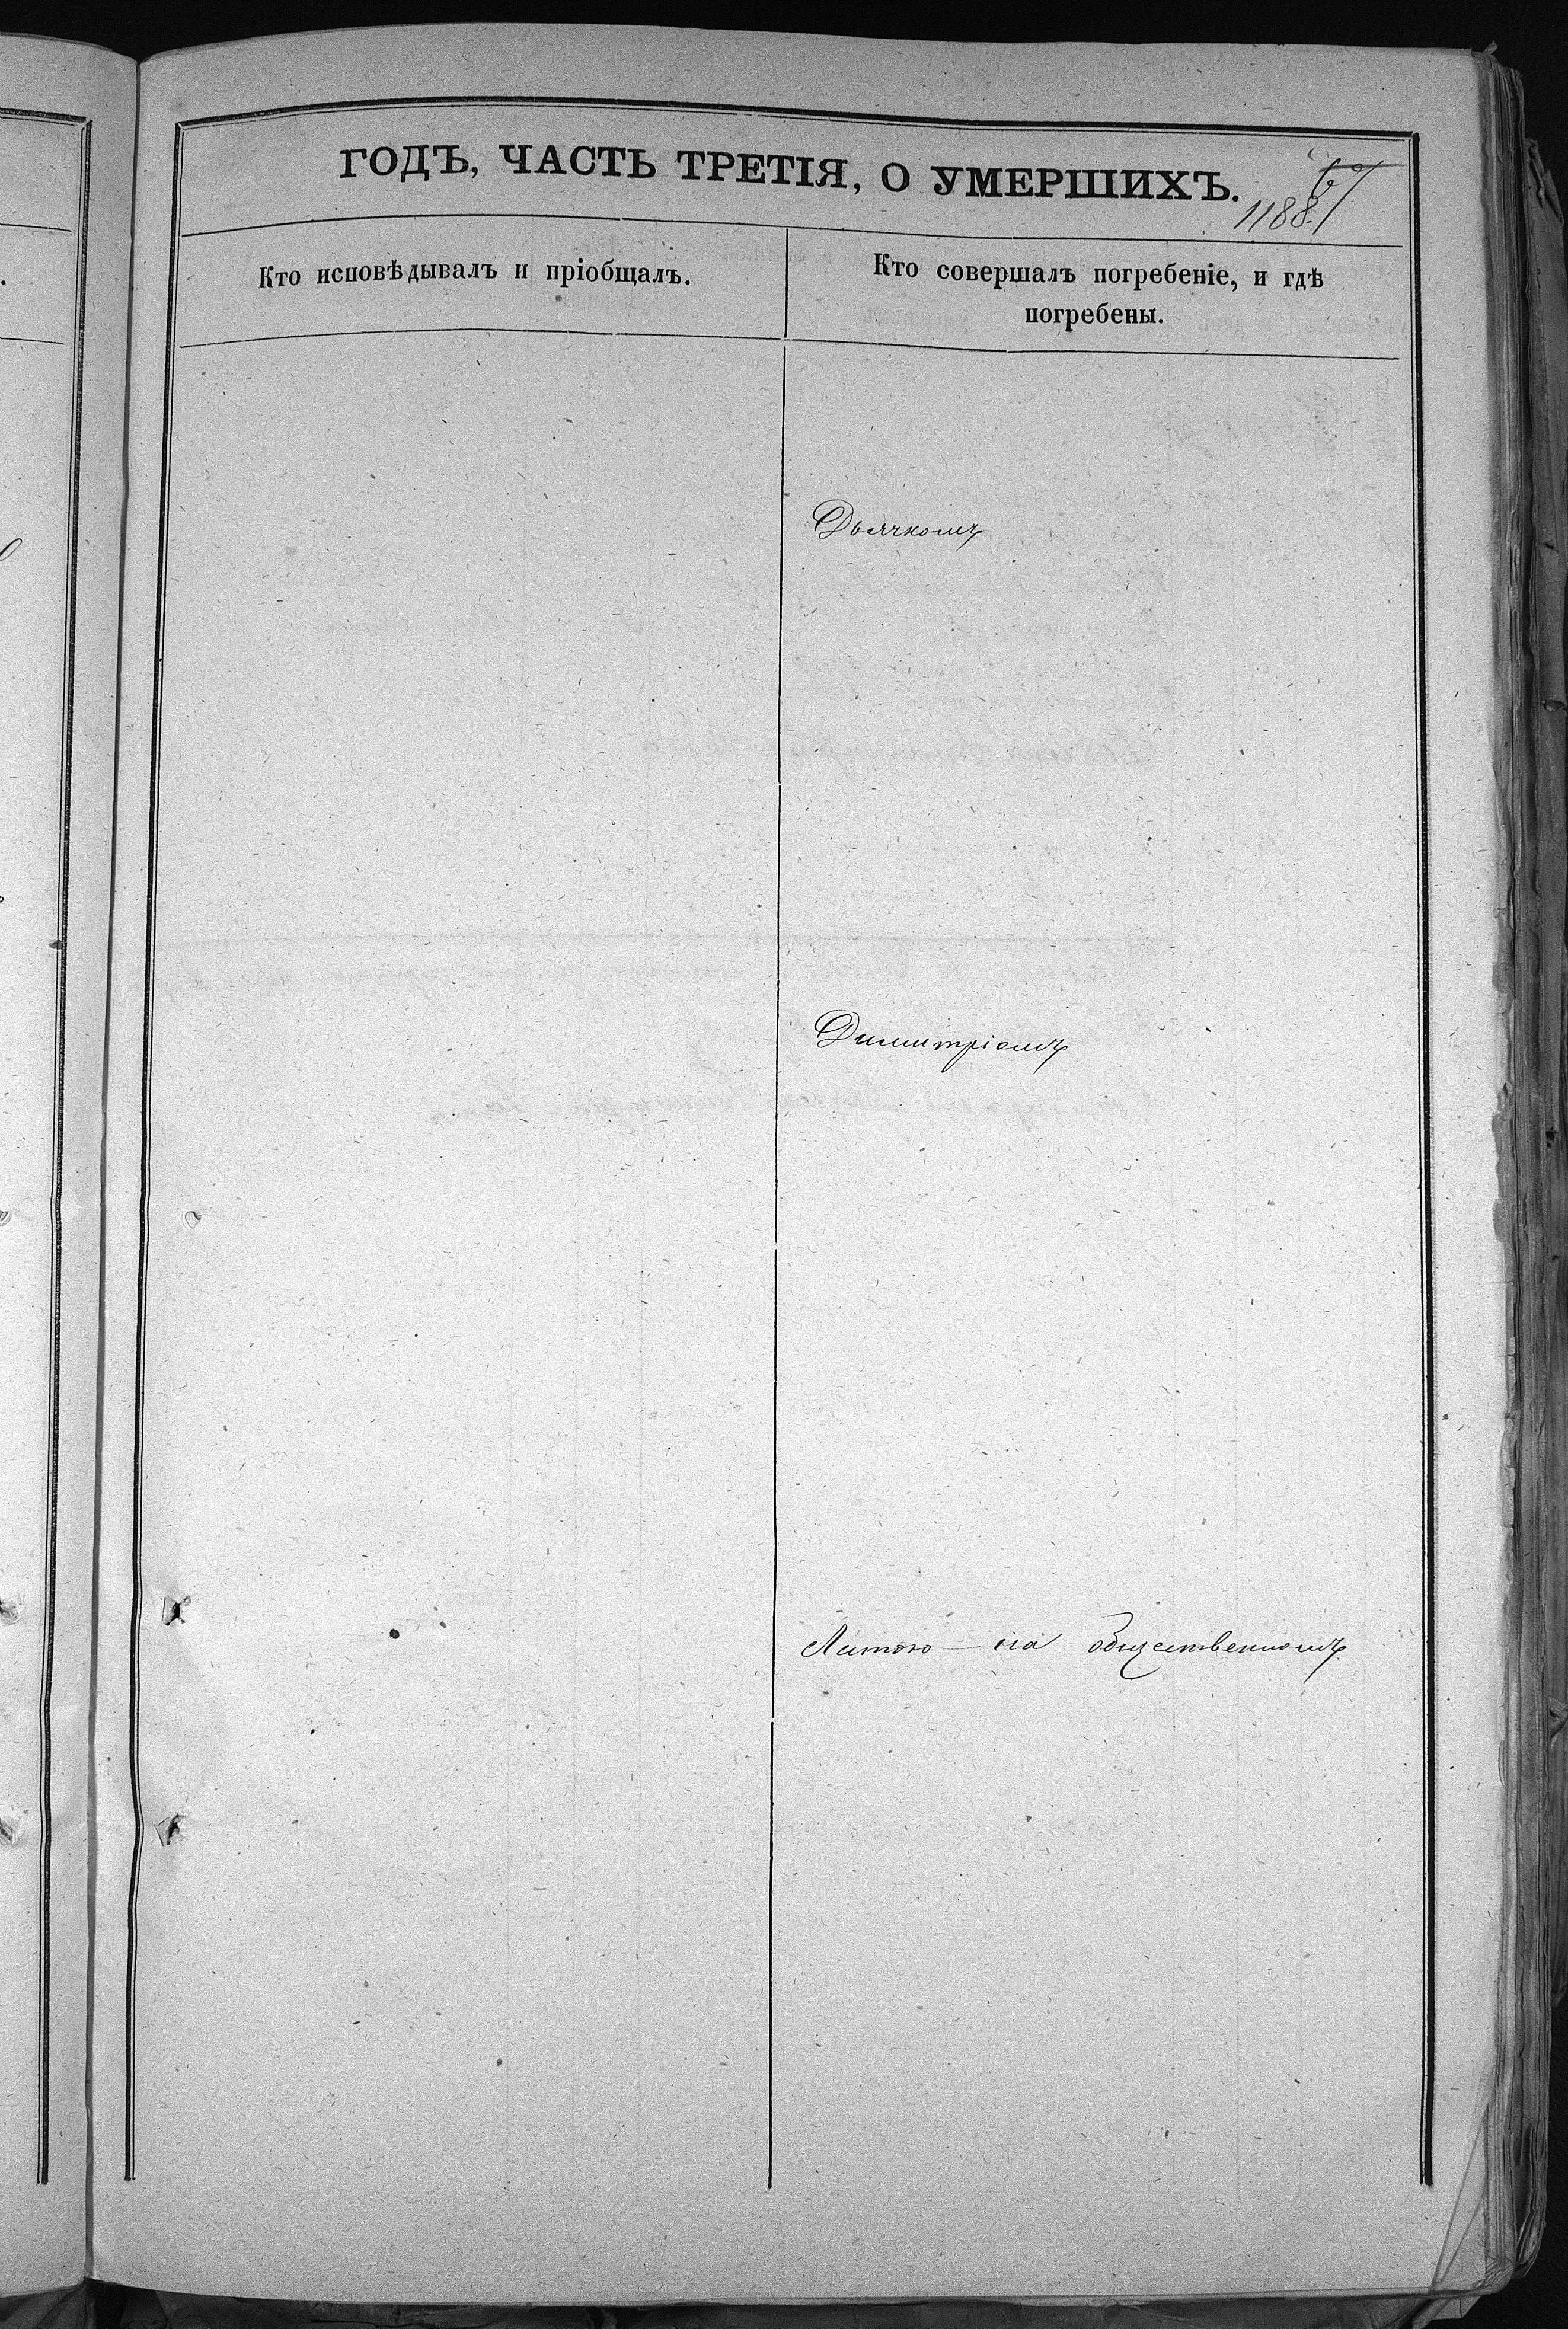 ГОДЪ, ЧАСТЬ ТРЕТІЯ, О УМЕРШИХЪ.
67
1188.
Кто исповѣдывалъ и пріобщалъ.
Кто совершалъ погребеніе, и гдѣ
погребены.
Дьячкомъ
Димитріемъ
на общественномъ